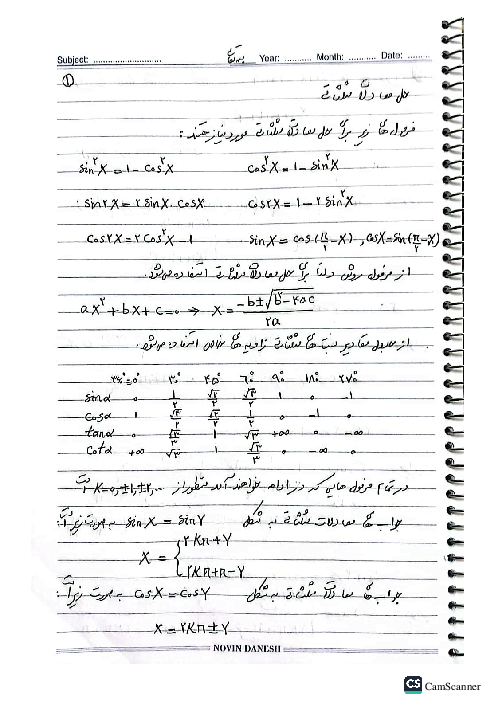 Subject: .......................... Year: ........... Month: ........... Date: .........
①
حل معادلات مثلثاتی
فرمول های زیر برای حل معادلات مثلثاتی مورد نیاز هستند:
sin²X = 1 - cos²X cos²X = 1 - sin²X
sin۲X = ۲ sinX . cosX cos۲X = 1 - ۲ sin²X
cos۲X = ۲cos²X - 1 sinX = cos(π/۲ - X) , cosX = sin(π/۲ - X)
از فرمول روش دلتا برای حل معادلات مثلثاتی استفاده می‌شود.
aX² + bX + c = 0 ⇒ X = (-b ± √(b² - ۴ac)) / ۲a
از جدول مقادیر نسبت های مثلثاتی زاویه های خاص استفاده می‌شود.
۳۶۰°=۰° ۳۰° ۴۵° ۶۰° ۹۰° ۱۸۰° ۲۷۰°
sinα ۰ ۱/۲ √۲/۲ √۳/۲ ۱ ۰ -۱
cosα ۱ √۳/۲ √۲/۲ ۱/۲ ۰ -۱ ۰
tanα ۰ √۳/۳ ۱ √۳ +∞ ۰ -∞
cotα +∞ √۳ ۱ √۳/۳ ۰ -∞ ۰
در تمام فرمول هایی که در ادامه خواهند آمد منظور از K=۰,±۱,±۲,... است
جواب های معادلات مثلثاتی به شکل sinX = sinY به صورت زیر است:
X = { ۲Kπ + Y
۲Kπ + π - Y
جواب های معادلات مثلثاتی به شکل cosX = cosY به صورت زیر است:
X = ۲Kπ ± Y
NOVIN DANESH
CS CamScanner